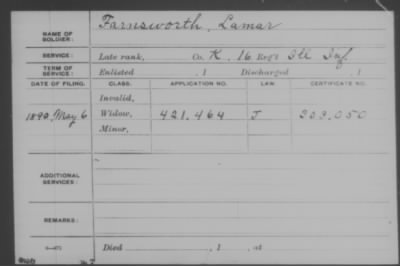 NAME OF SOLDIER: Farnsworth, Lamar
SERVICE: Late rank, Co. K, 16 Reg't Ill Inf.
TERM OF SERVICE: Enlisted , 1 Discharged , 1
DATE OF FILING. CLASS. APPLICATION NO. LAW. CERTIFICATE NO.
Invalid,
1890, May 6 Widow, 421.464 J 303.050
Minor,
ADDITIONAL SERVICES:
REMARKS:
Died , 1 , at